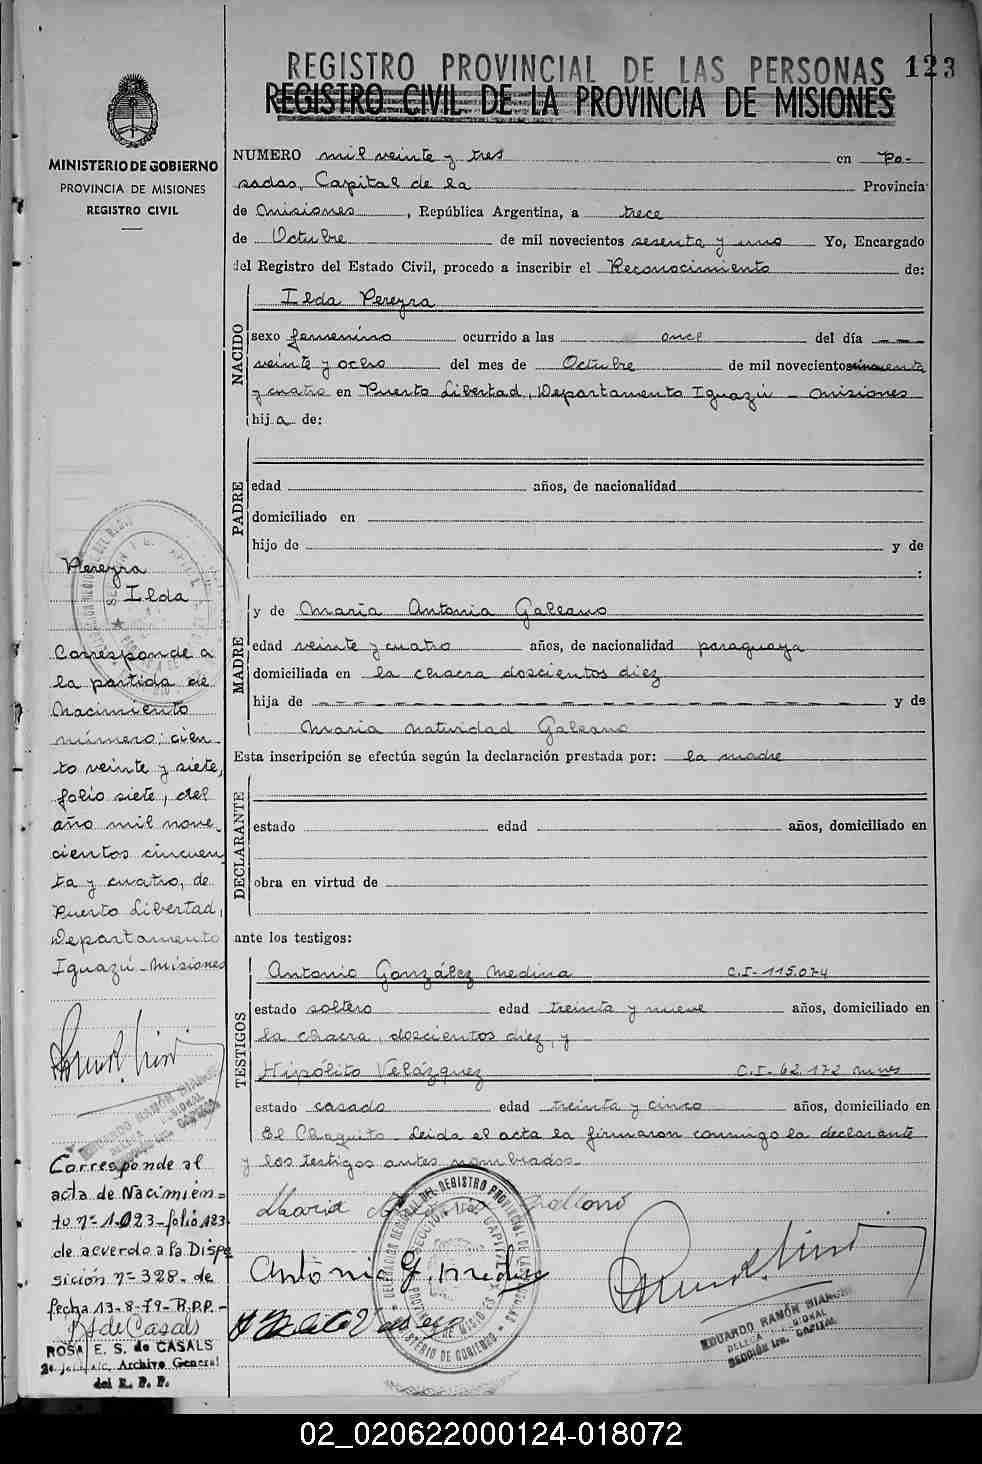 REGISTRO PROVINCIAL DE LAS PERSONAS 123
REGISTRO CIVIL DE LA PROVINCIA DE MISIONES
MINISTERIO DE GOBIERNO
PROVINCIA DE MISIONES
REGISTRO CIVIL
NUMERO mil veinte y tres en Po-
sadas, Capital de la Provincia
de Misiones, República Argentina, a trece
de Octubre de mil novecientos sesenta y uno Yo, Encargado
del Registro del Estado Civil, procedo a inscribir el Reconocimiento de:
NACIDO
Ilda Pereyra
sexo femenino ocurrido a las once del día
veinte y ocho del mes de Octubre de mil novecientos cincuenta
y cuatro en Puerto Libertad, Departamento Iguazú - Misiones
hija de:
PADRE
edad años, de nacionalidad
domiciliado en
hijo de y de
:
MADRE
y de Maria Antonia Galeano
edad veinte y cuatro años, de nacionalidad paraguaya
domiciliada en la chacra doscientos diez
hija de y de
Maria Natividad Galeano
Esta inscripción se efectúa según la declaración prestada por: la madre
DECLARANTE
estado edad años, domiciliado en
obra en virtud de
ante los testigos:
TESTIGOS
Antonio González Medina C.I-115.074
estado soltero edad treinta y nueve años, domiciliado en
la chacra, doscientos diez, y
Hipólito Velázquez C.I-62.172 mnes
estado casado edad treinta y cinco años, domiciliado en
El Chaquito. Leida el acta la firmaron conmigo la declarante
y los testigos antes nombrados.-
Maria
Antonio G.
EDUARDO RAMÓN BIANCHI
DELEGADO REGIONAL
SECCIÓN 1ra. CAPITAL
Pereyra
Ilda
Corresponde a
la partida de
Nacimiento
número: cien-
to veinte y siete,
folio siete, del
año mil nove-
cientos cincuen
ta y cuatro, de
Puerto Libertad,
Departamento
Iguazú - Misiones
EDUARDO RAMÓN BIANCHI
Corresponde al
acta de Nacimien=
to nº 1.023-folio 123-
de acuerdo a la Dispo
sición nº 328- de
fecha 13-8-79-R.P.P.-
R S de Casals
ROSA E. S. de CASALS
Archivo General
del R. P. P.
02_020622000124-018072